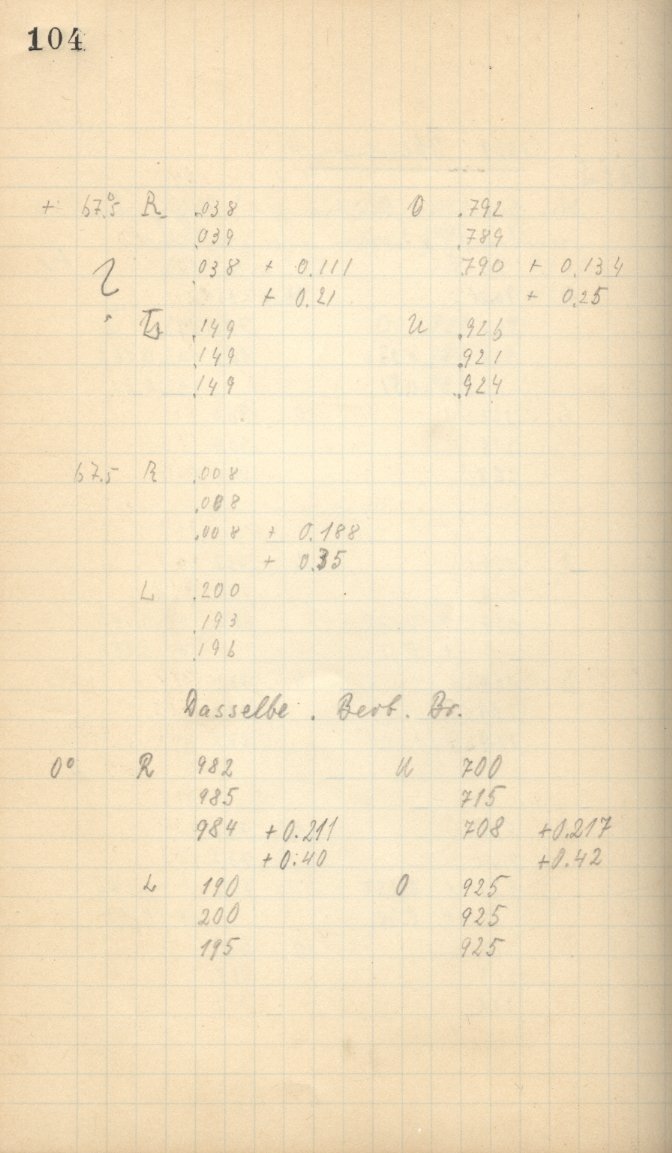 104
+ 67.5° R .038 O .792
.039 .789
? .038 + 0.111 .790 + 0.134
+ 0.21 + 0.25
L .149 U .926
.149 .921
.149 .924
67.5 R .008
.008
.008 + 0.188
+ 0.35
L .200
.193
.196
Dasselbe . Berb. Br.
0° R 982 U 700
985 715
984 +0.211 708 +0.217
+0.40 +0.42
L 190 O 925
200 925
195 925